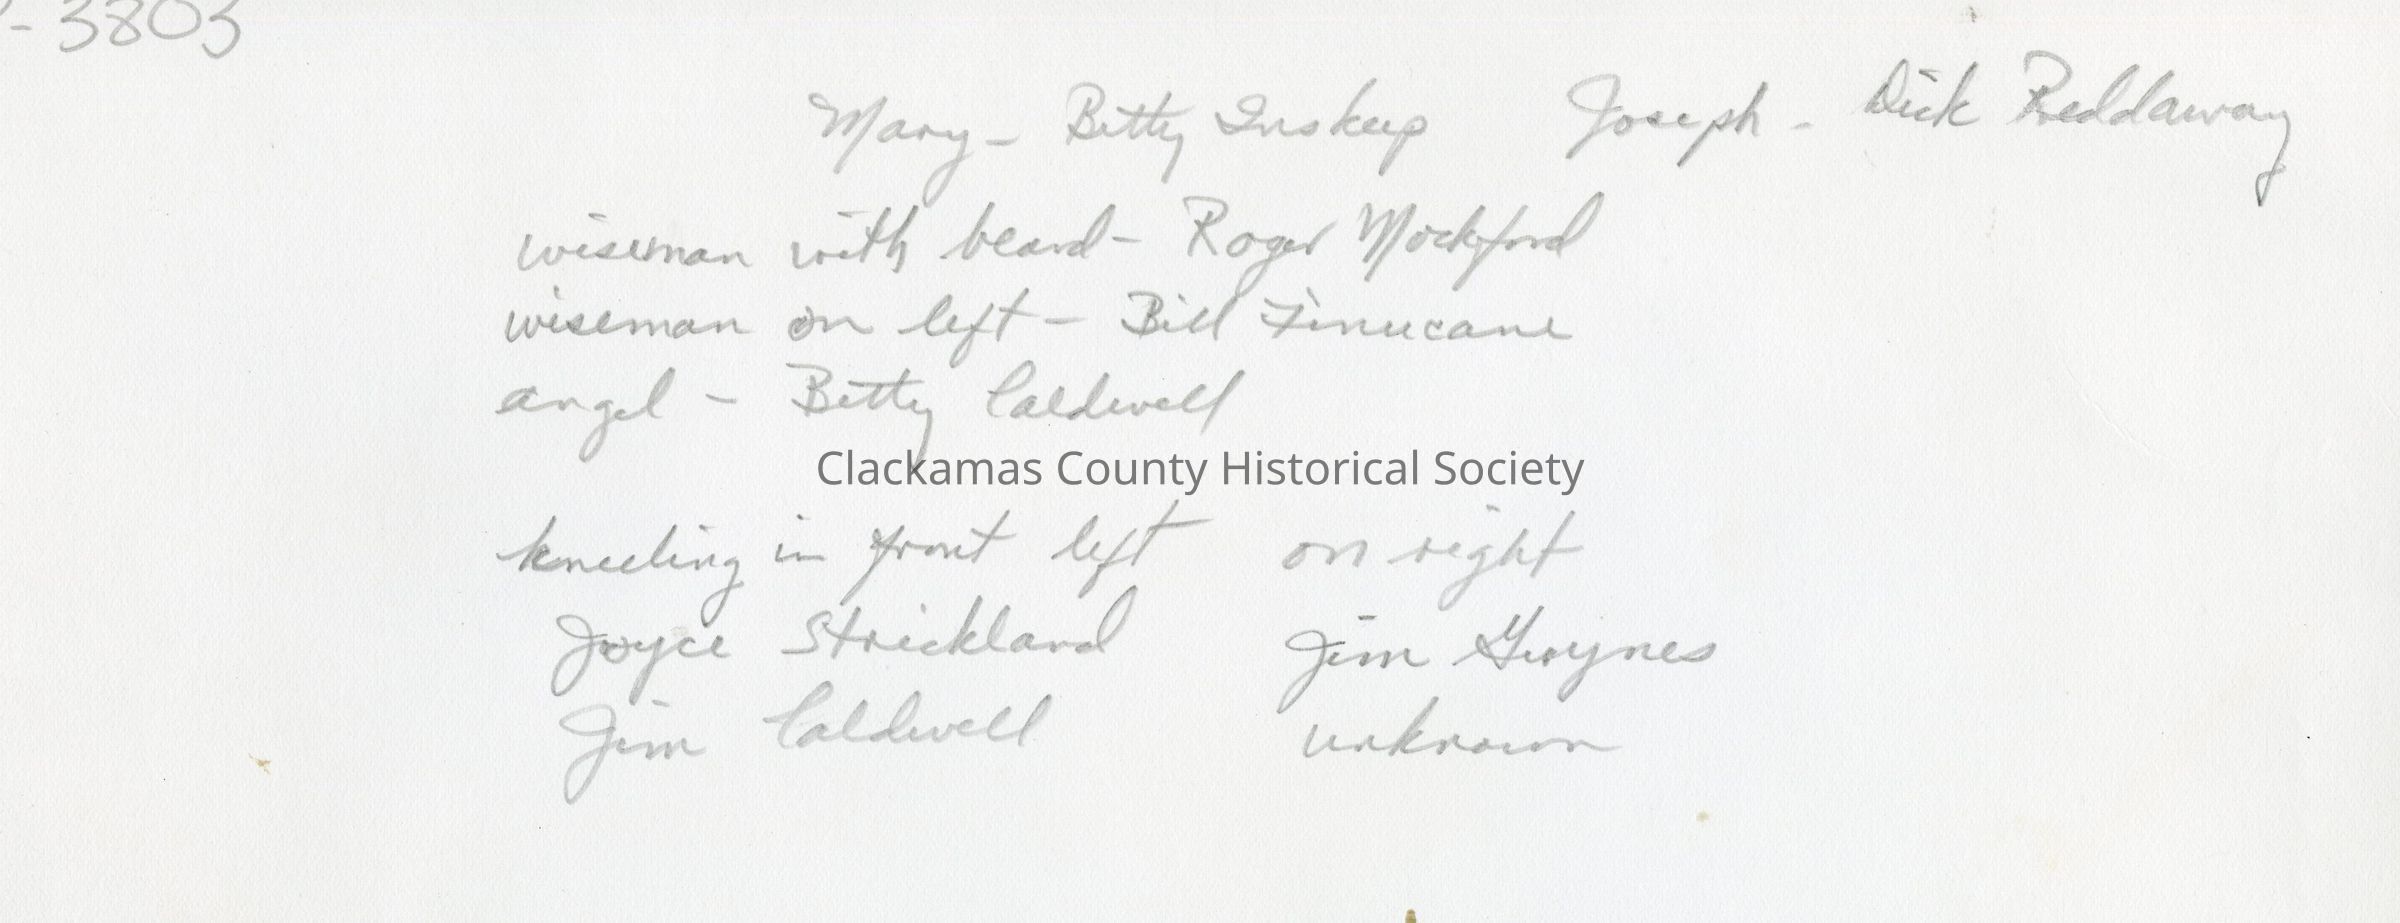 - 3803
Mary - Betty Inskeep Joseph - Dick Reddaway
wiseman with beard - Roger Mockford
wiseman on left - Bill Finucane
angel - Betty Caldwell
Clackamas County Historical Society
kneeling in front left on right
Joyce Strickland Jim Gwynes
Jim Caldwell unknown